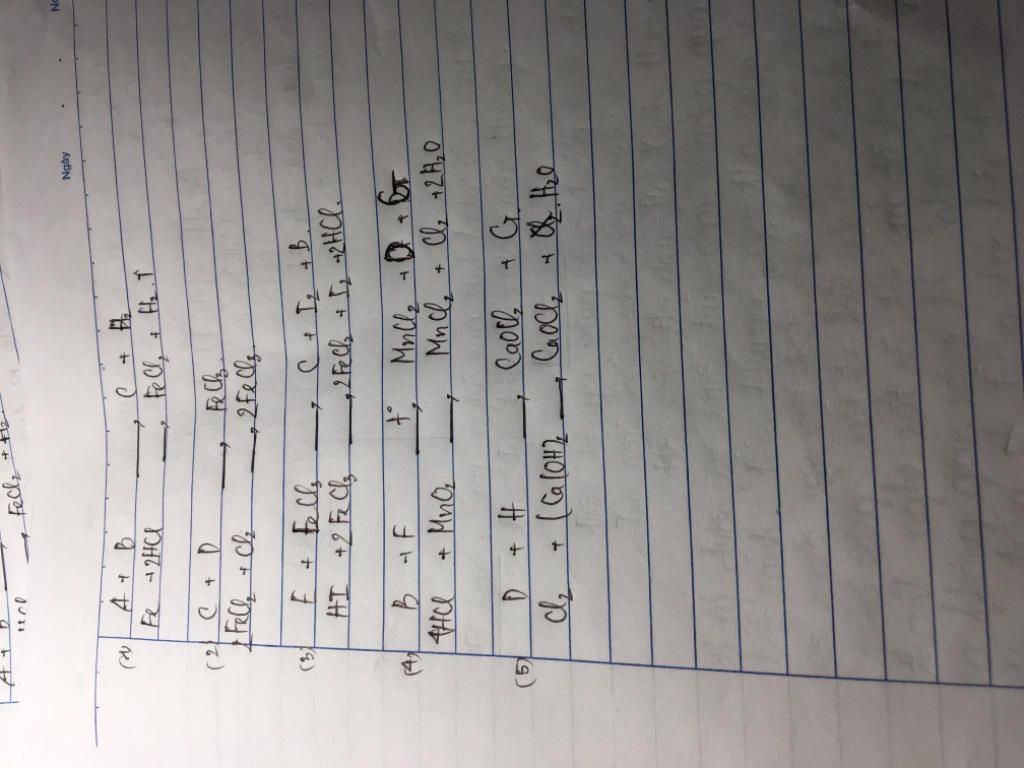 Ngày
A + B → FeCl₂ + H₂
(1) A + B → C + H₂
Fe + 2HCl → FeCl₂ + H₂ ↑
(2) C + D → FeCl₃
2FeCl₂ + Cl₂ → 2FeCl₃
(3) E + FeCl₃ → C + I₂ + B
HI + 2FeCl₃ → 2FeCl₂ + I₂ + 2HCl.
(4) B + F t° → MnCl₂ + D + G
4HCl + MnO₂ → MnCl₂ + Cl₂ + 2H₂O
(5) D + H → CaOCl₂ + G
Cl₂ + Ca(OH)₂ → CaOCl₂ + H₂O